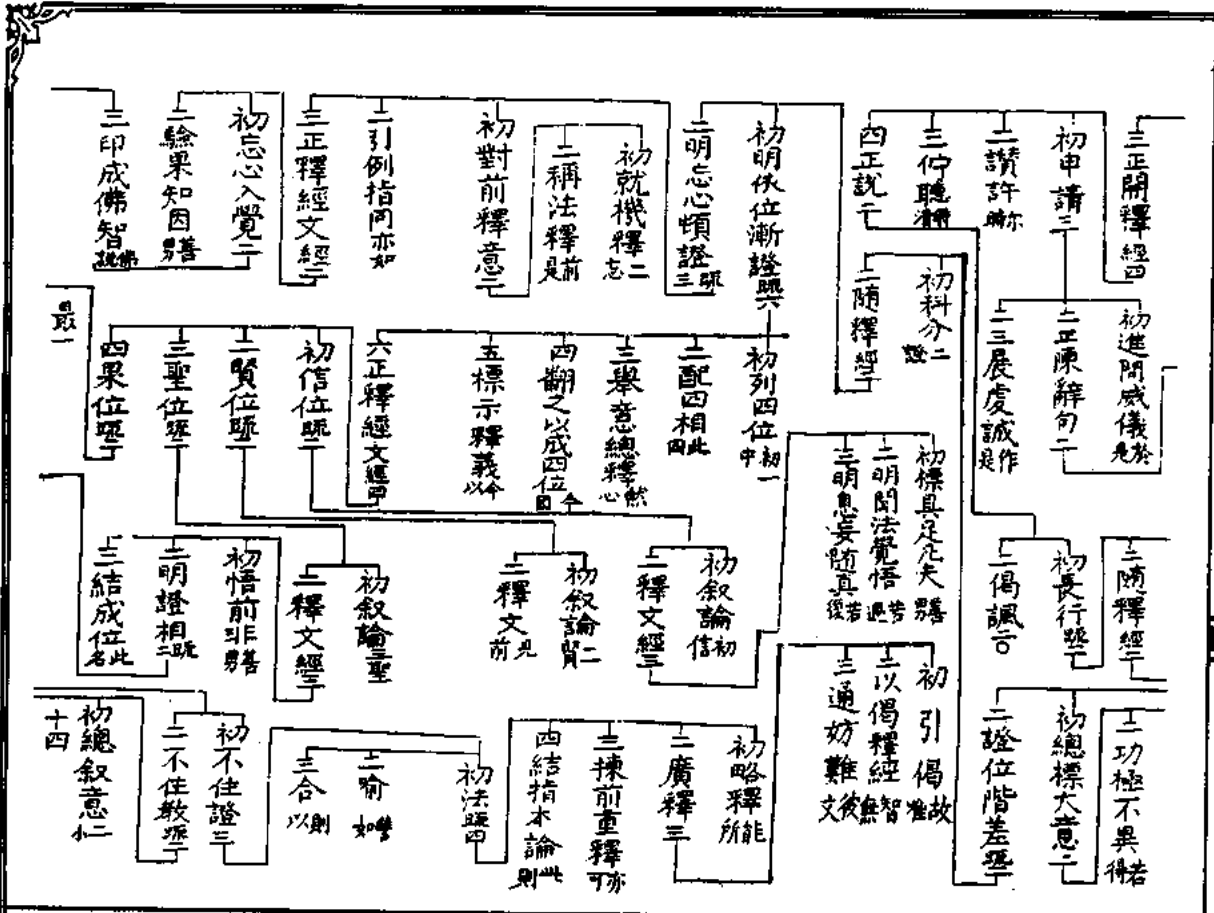 三正開釋經四
初申請三
二讚許 爾時
三佇聽
四正說二
初明依位漸證
二明忘心頓證 疏三
初就機釋二 忘
二稱法釋 前是
初對前釋意二
二引例指同 亦如
三正釋經文 經二
初忘心入覺二
二驗果知因 善男
三印成佛智
初進問威儀 於是
二正陳辭句二
三展虔誠 作是
初科分二 證
二隨釋 經二
初列四位 初一中
二配四相 此四
三舉意總釋 然心
四翻之以成四位 今
五標示釋義 今以
六正釋經文 經四
初信位 疏二
二賢位 疏二
三聖位 疏二
四果位 疏二
最一
二隨釋 經二
初長行 疏二
二偈諷二
初標具足凡夫 善男
二明聞法覺悟 若遇
三明息妄隨真 若復
初叙論 初信
二釋文 經三
初叙論二 賢
二釋文 見前
初叙論 三聖
二釋文 經三
初悟前非 善男
二明證相 疏二
三結成位 此名
二功極不異 若得
初總標大意二
二證位階差 疏二
初引偈 故准
二以偈釋經 智無
三通妨難 彼文
初略釋 能所
二廣釋三
三揀前重釋 亦可
四結指本論 此則
初法 疏四
二喻 譬如
三合 則以
初不住證三
二不住教 疏二
初總叙意二
十四